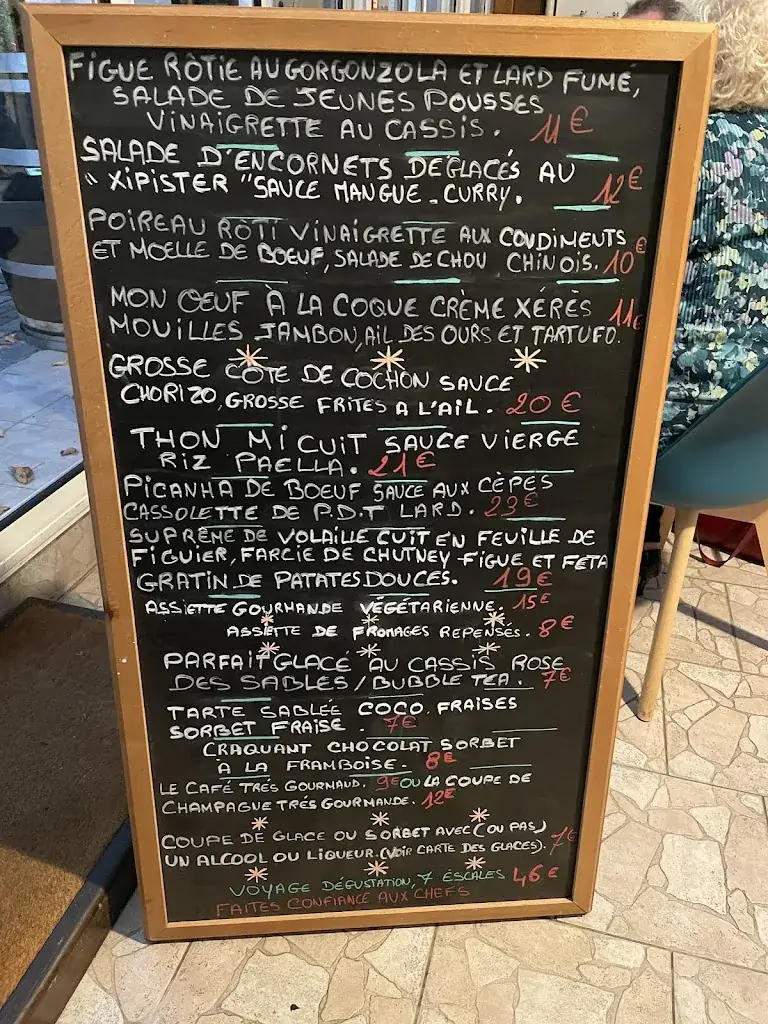 FIGUE RÔTIE AU GORGONZOLA ET LARD FUMÉ,
SALADE DE JEUNES POUSSES
VINAIGRETTE AU CASSIS. 11€
SALADE D'ENCORNETS DEGLACÉS AU
"XIPISTER" SAUCE MANGUE-CURRY. 12€
POIREAU RÔTI VINAIGRETTE AUX CONDIMENTS
ET MOELLE DE BOEUF, SALADE DE CHOU CHINOIS. 10€
MON OEUF À LA COQUE CRÈME XÉRÈS 11€
MOUILLES JAMBON, AIL DES OURS ET TARTUFO.
GROSSE CÔTE DE COCHON SAUCE
CHORIZO, GROSSE FRITES A L'AIL. 20€
THON MI CUIT SAUCE VIERGE
RIZ PAELLA. 21€
PICANHA DE BOEUF SAUCE AUX CÈPES
CASSOLETTE DE P.D.T LARD. 23€
SUPRÊME DE VOLAILLE CUIT EN FEUILLE DE
FIGUIER, FARCIE DE CHUTNEY FIGUE ET FETA
GRATIN DE PATATES DOUCES. 19€
ASSIETTE GOURMANDE VÉGÉTARIENNE. 15€
ASSIETTE DE FROMAGES REPENSÉS. 8€
PARFAIT GLACÉ AU CASSIS ROSE
DES SABLES/BUBBLE TEA. 7€
TARTE SABLÉE COCO FRAISES
SORBET FRAISE. 7€
CRAQUANT CHOCOLAT SORBET
À LA FRAMBOISE. 8€
LE CAFÉ TRÉS GOURNAUD. 9€ OU LA COUPE DE
CHAMPAGNE TRÉS GOURMANDE. 12€
COUPE DE GLACE OU SORBET AVEC (OU PAS) 7€
UN ALCOOL OU LIQUEUR. (VOIR CARTE DES GLACES).
VOYAGE DÉGUSTATION, 7 ESCALES 46€
FAITES CONFIANCE AUX CHEFS